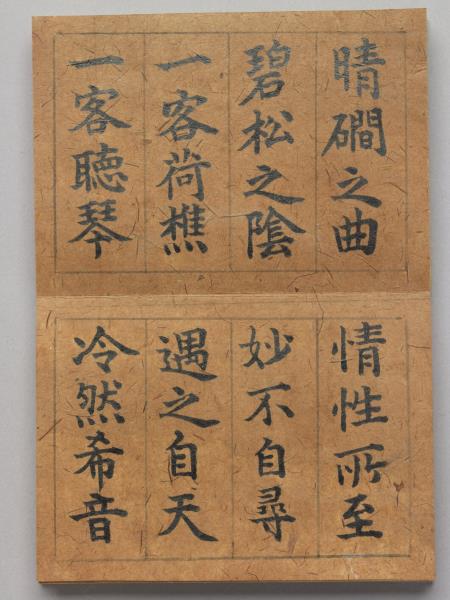 晴磵之曲
碧松之陰
一客荷樵
一客聴琴
情性所至
妙不自尋
遇之自天
冷然希音